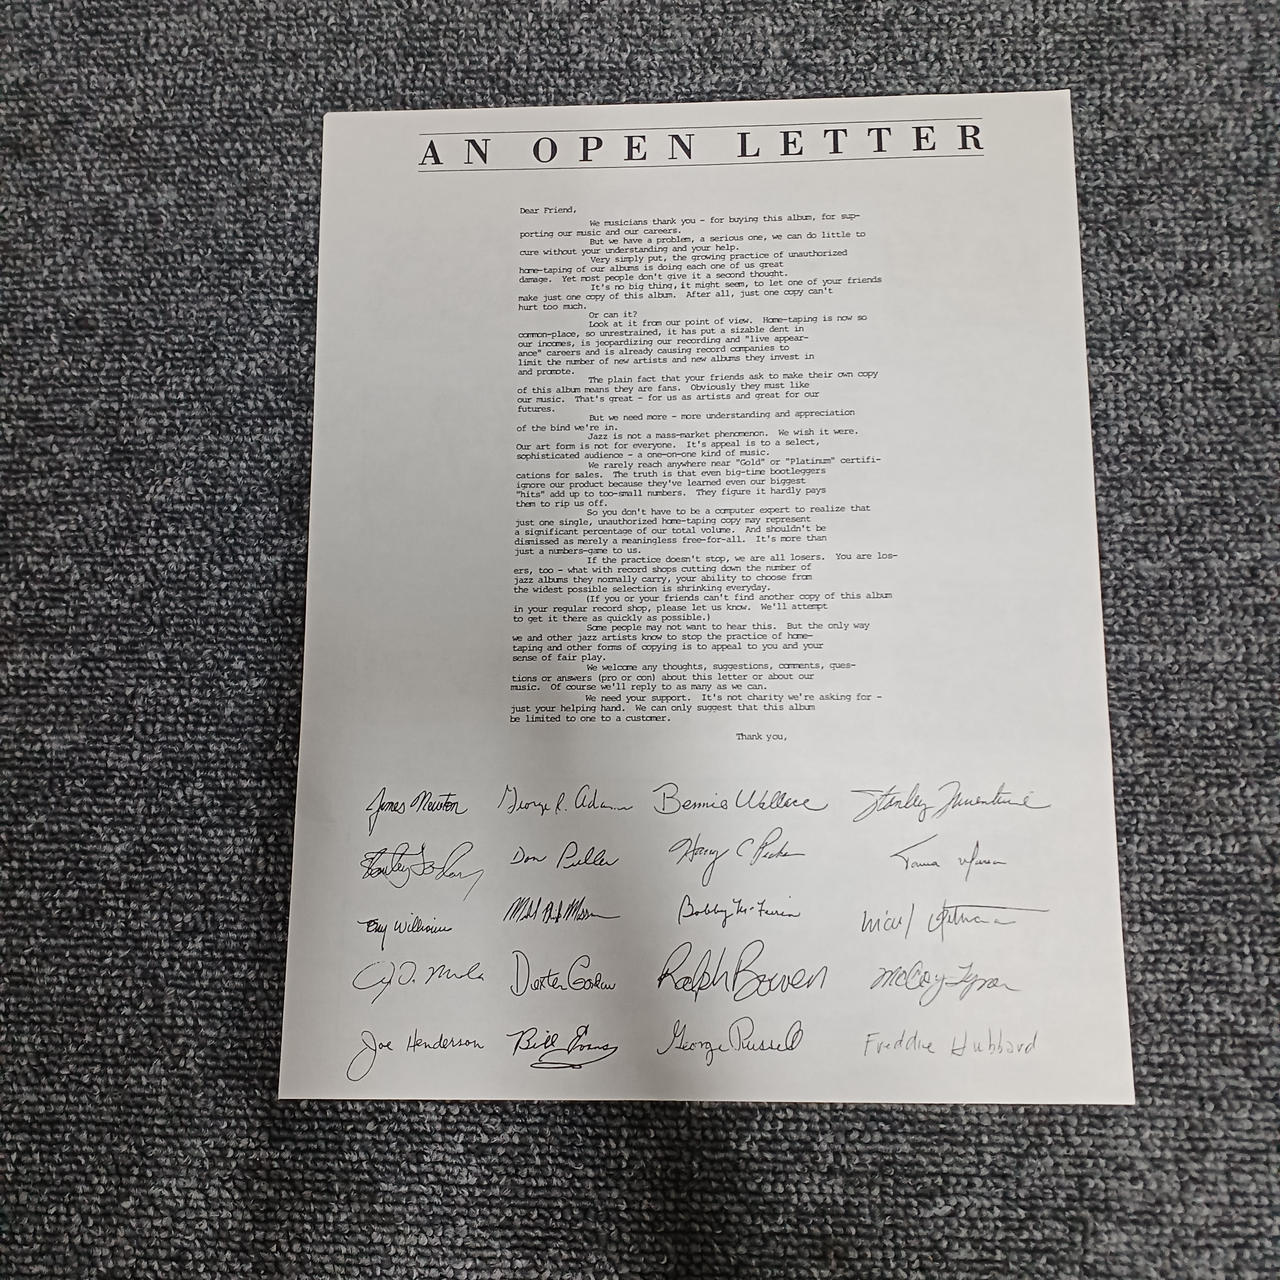 AN OPEN LETTER
Dear Friend,
We musicians thank you - for buying this album, for sup-
porting our music and our careers.
But we have a problem, a serious one, we can do little to
cure without your understanding and your help.
Very simply put, the growing practice of unauthorized
home-taping of our albums is doing each one of us great
damage. Yet most people don't give it a second thought.
It's no big thing, it might seem, to let one of your friends
make just one copy of this album. After all, just one copy can't
hurt too much.
Or can it?
Look at it from our point of view. Home-taping is now so
common-place, so unrestrained, it has put a sizable dent in
our incomes, is jeopardizing our recording and "live appear-
ance" careers and is already causing record companies to
limit the number of new artists and new albums they invest in
and promote.
The plain fact that your friends ask to make their own copy
of this album means they are fans. Obviously they must like
our music. That's great - for us as artists and great for our
futures.
But we need more - more understanding and appreciation
of the bind we're in.
Jazz is not a mass-market phenomenon. We wish it were.
Our art form is not for everyone. It's appeal is to a select,
sophisticated audience - a one-on-one kind of music.
We rarely reach anywhere near "Gold" or "Platinum" certifi-
cations for sales. The truth is that even big-time bootleggers
ignore our product because they've learned even our biggest
"hits" add up to too-small numbers. They figure it hardly pays
them to rip us off.
So you don't have to be a computer expert to realize that
just one single, unauthorized home-taping copy may represent
a significant percentage of our total volume. And shouldn't be
dismissed as merely a meaningless free-for-all. It's more than
just a numbers-game to us.
If the practice doesn't stop, we are all losers. You are los-
ers, too - what with record shops cutting down the number of
jazz albums they normally carry, your ability to choose from
the widest possible selection is shrinking everyday.
(If you or your friends can't find another copy of this album
in your regular record shop, please let us know. We'll attempt
to get it there as quickly as possible.)
Some people may not want to hear this. But the only way
we and other jazz artists know to stop the practice of home-
taping and other forms of copying is to appeal to you and your
sense of fair play.
We welcome any thoughts, suggestions, comments, ques-
tions or answers (pro or con) about this letter or about our
music. Of course we'll reply to as many as we can.
We need your support. It's not charity we're asking for -
just your helping hand. We can only suggest that this album
be limited to one to a customer.
Thank you,
James Newton George R. Adams Bennie Wallace Stanley Turrentine
Stanley Jordan Don Pullen Tania Maria
Tony Williams Bobby McFerrin
Dexter Gordon Ralph Bowen McCoy Tyner
Joe Henderson Bill Evans George Russell Freddie Hubbard